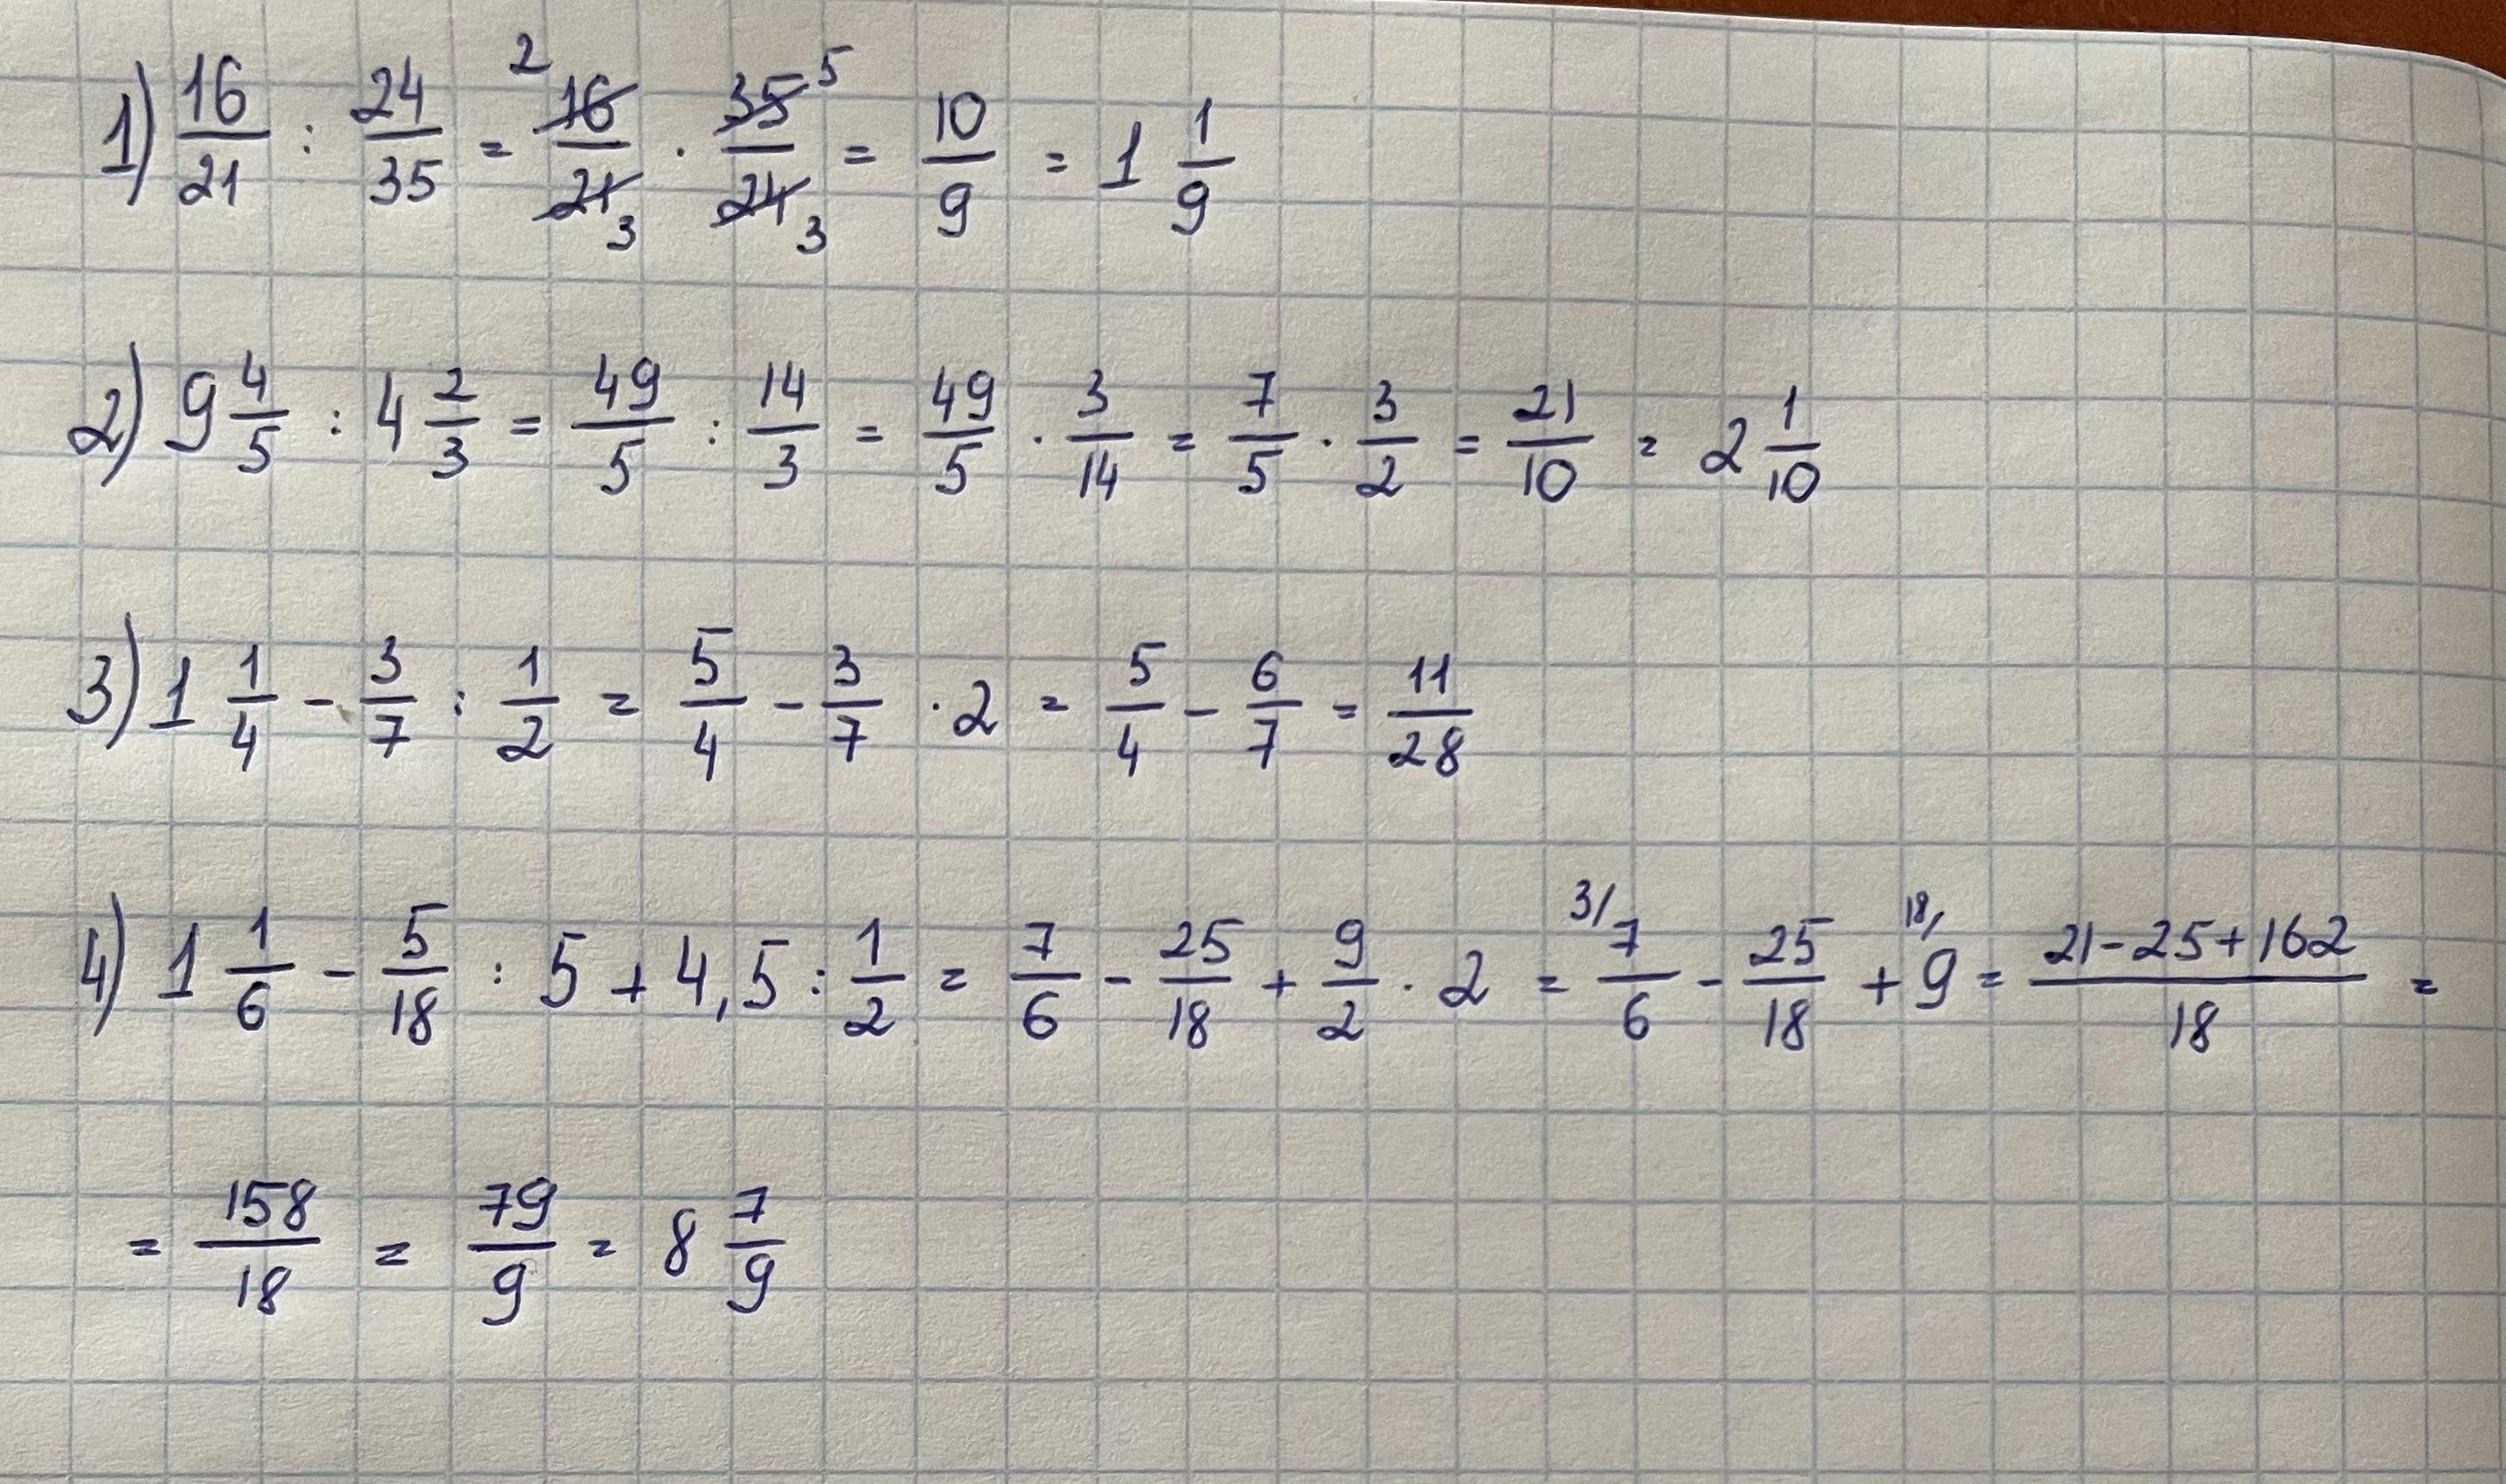 1) 16/21 : 24/35 = 2 16/21 3 · 35 5/24 3 = 10/9 = 1 1/9
2) 9 4/5 : 4 2/3 = 49/5 : 14/3 = 49/5 · 3/14 = 7/5 · 3/2 = 21/10 = 2 1/10
3) 1 1/4 - 3/7 : 1/2 = 5/4 - 3/7 · 2 = 5/4 - 6/7 = 11/28
4) 1 1/6 - 5/18 : 5 + 4,5 : 1/2 = 7/6 - 25/18 + 9/2 · 2 = 3/ 7/6 - 25/18 + 18/ 9 = 21-25+162/18 =
= 158/18 = 79/9 = 8 7/9